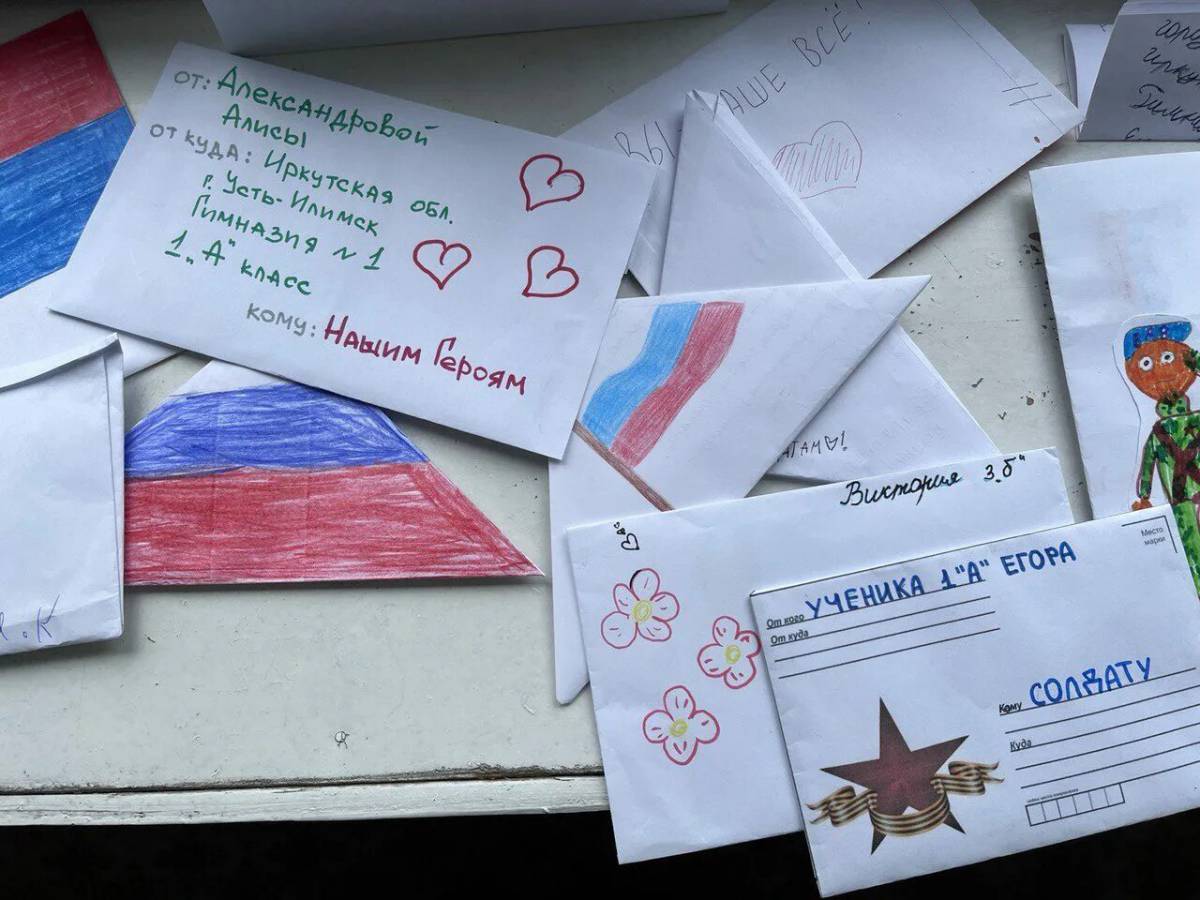 от: Александровой
Алисы
от куда: Иркутская обл.
г. Усть-Илимск
Гимназия №1
1 „А" класс
кому: Нашим Героям
ВЫ НАШЕ ВСЁ!
Виктория 3„б"
Место
марки
От кого УЧЕНИКА 1"А" ЕГОРА
От куда
Кому СОЛДАТУ
Куда